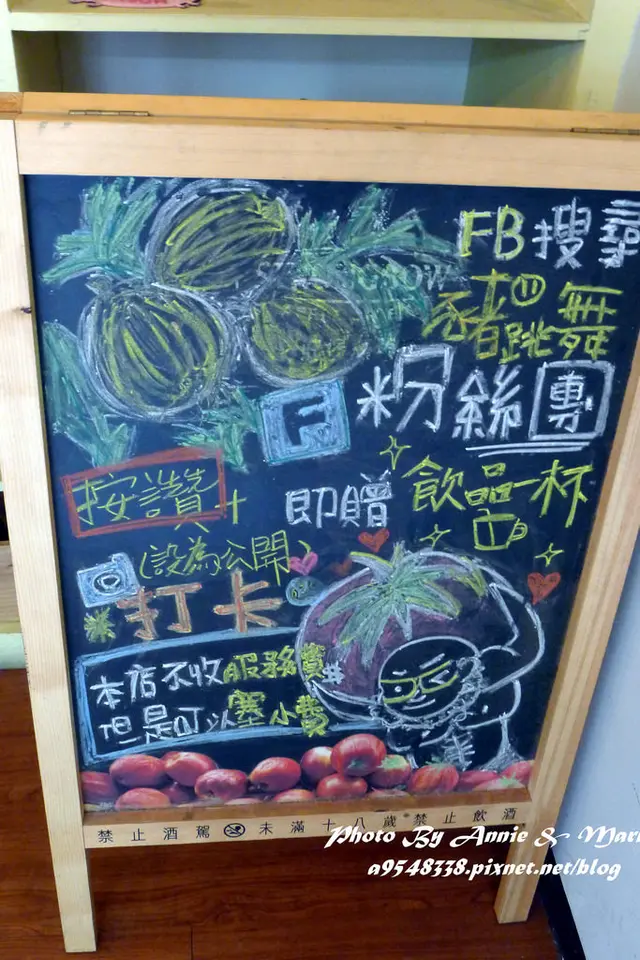 FB搜尋
豬跳舞
粉絲團
F
按讚+
即贈
飲品一杯
(設為公開)
打卡
本店不收服務費
但是可以塞小費
禁止酒駕 未滿十八歲禁止飲酒
Photo By Annie & Mar
a9548338.pixnet.net/blog